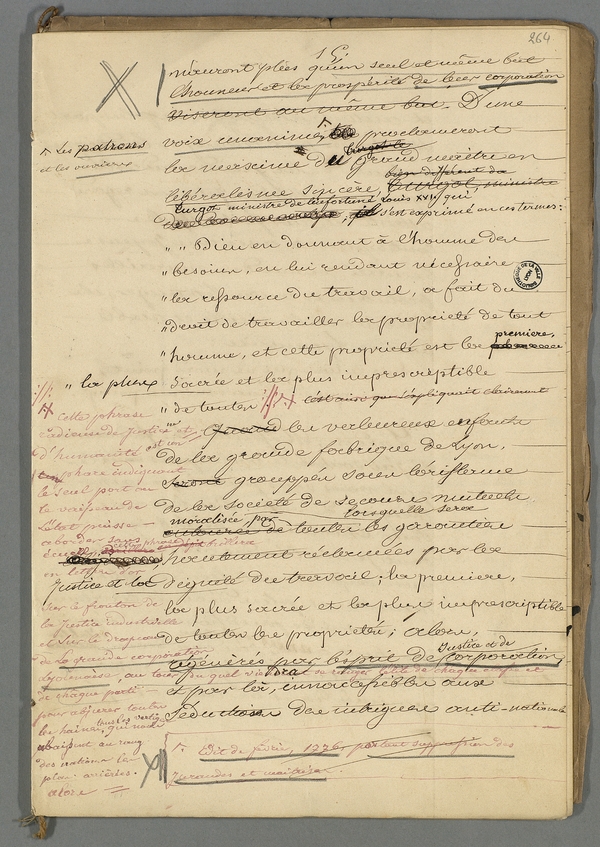 264
15.
n'auront plus qu'un seul et même but
l'honneur et la prospérité de leur corporation
viseront au même but. D'une
voix unanime, proclameront
^ Les patrons
et les ouvriers
la maxime du grand maître en
Turgot le
libéralisme sincère, Turgot, ministre
bien différent de
Turgot ministre de l'infortuné Louis XVI, qui
s'est exprimé en ces termes:
" " Dieu en donnant à l'homme des
" besoins, en lui rendant nécessaire
" la ressource du travail, a fait du
" droit de travailler la propriété de tout
" homme, et cette propriété est la
première,
" la plus sacrée et la plus imprescriptible
" de toutes c'est ainsi que s'expliquait clairement
Quand les valeureux enfants
de la grande fabrique de Lyon,
seront groupés sous l'oriflamme
de la société de secours mutuels
moralisée, par lorsquelle sera
de toutes les garanties
hautement réclamées par la
Justice et la dignité du travail; la première,
la plus sacrée et la plus imprescriptible
de toutes les propriétés; alors,
régénérés par l'esprit de corporation,
Justice et de
et par là, inaccessibles aux
séductions des intrigues anti-nationales
cette phrase
radieuse de Justice et
d'humanité est un
phare indiquant
le seul port où
le vaisseau de
l'état puisse
aborder sans
en lettres d'or
sur le fronton de
la Justice industrielle
et sur le drapeau
de la grande corporation
Lyonnaise, au tour du quel viendra se ranger
de chaque parti
pour abjurer toutes
les haines, qui nous
abaissent au rang
des nations les
plus arriérées.
alors =
XII
^. Edit de février, 1776, portant suppression des
Jurandes et maîtrises.
BIBLIOTHEQUE DE LA VILLE
LYON